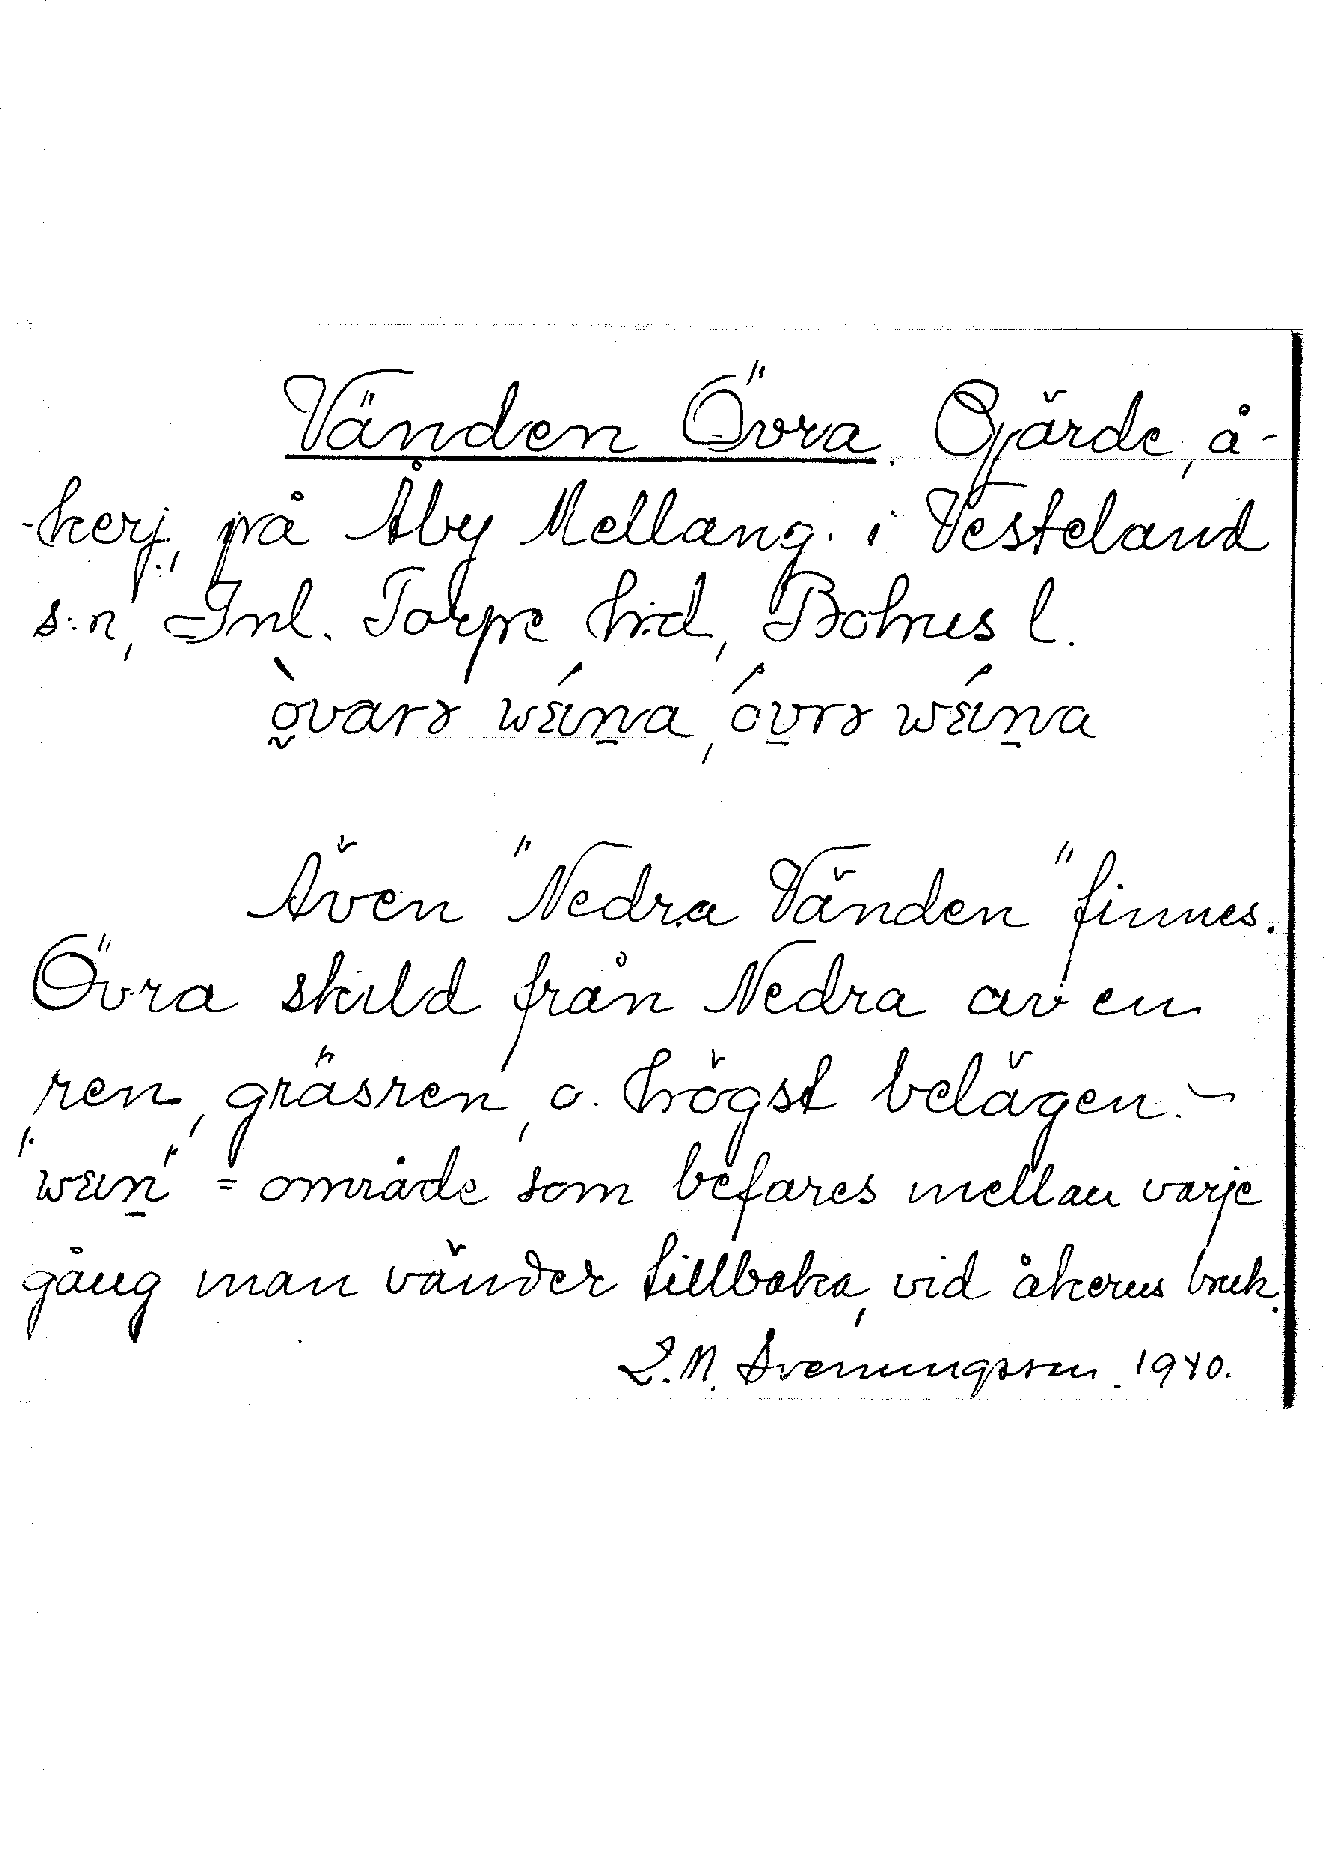 Vänden Övra. Gjärde, å-
-kerj, på Åby Mellang. i Vesteland
s:n, Inl. Torpe h:d, Bohus l.
ò̰varə wɛ́ın̠a, óv̠rə wɛ́ın̠a
Även "Nedra Vänden" finnes.
Övra skild från Nedra av en
ren, gräsren, o. högst belägen. –
"wɛın̠" = område som befares mellan varje
gång man vänder tillbaka, vid åkerns bruk.
L.M. Svenungsson. 1940.